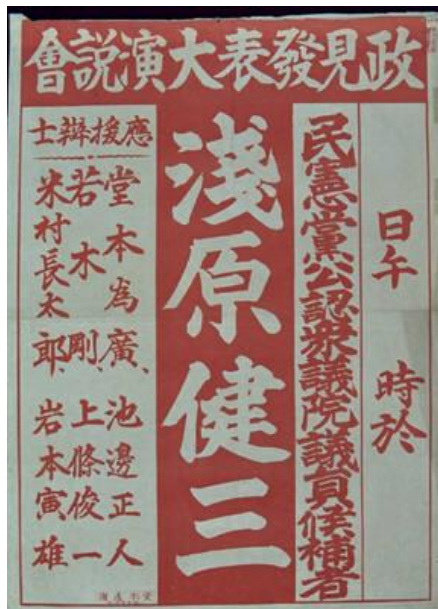 政見發表大演説會
日午　時於
民憲党公認衆議院議員候補者
淺原健三
應援辯士
堂本為廣、池邊正人
若木剛、上條俊一
米村長太郎、岩本寅雄